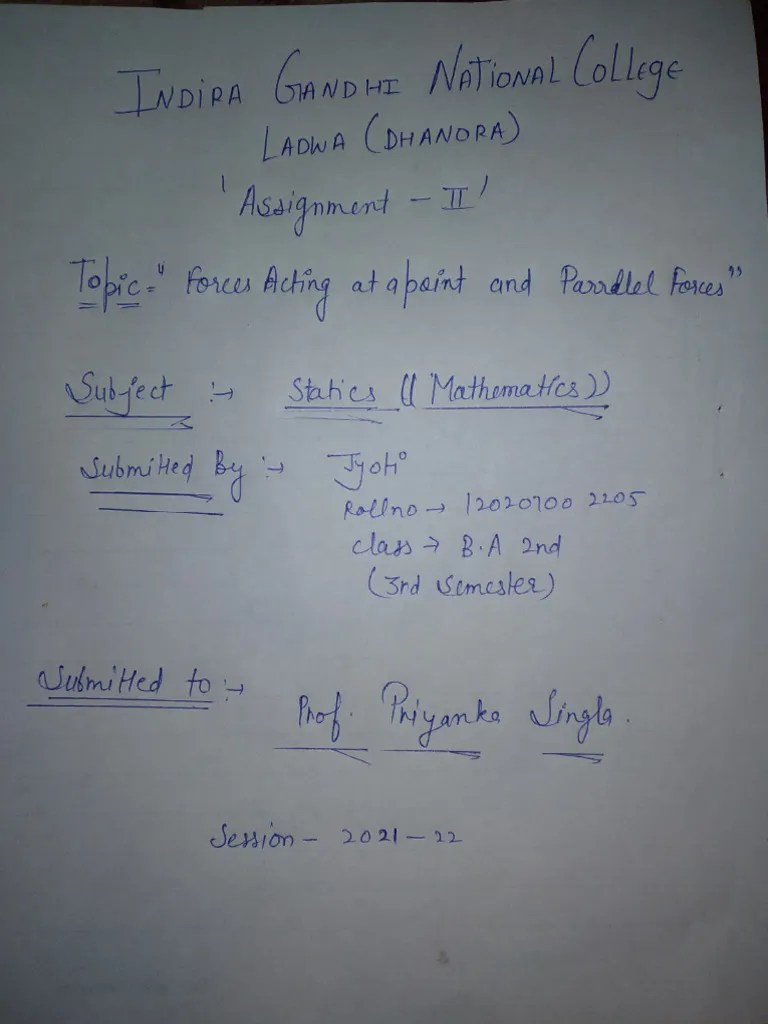 INDIRA GANDHI NATIONAL COLLEGE
LADWA (DHANORA)
'Assignment - II'
Topic = "Forces Acting at a point and Parrallel Forces"
Subject :→ Statics ((Mathematics))
Submitted By :→ Jyoti
Rollno → 120207002205
class → B.A 2nd
(3rd Semester)
Submitted to :→
Prof. Priyanka Singla.
Session - 2021-22